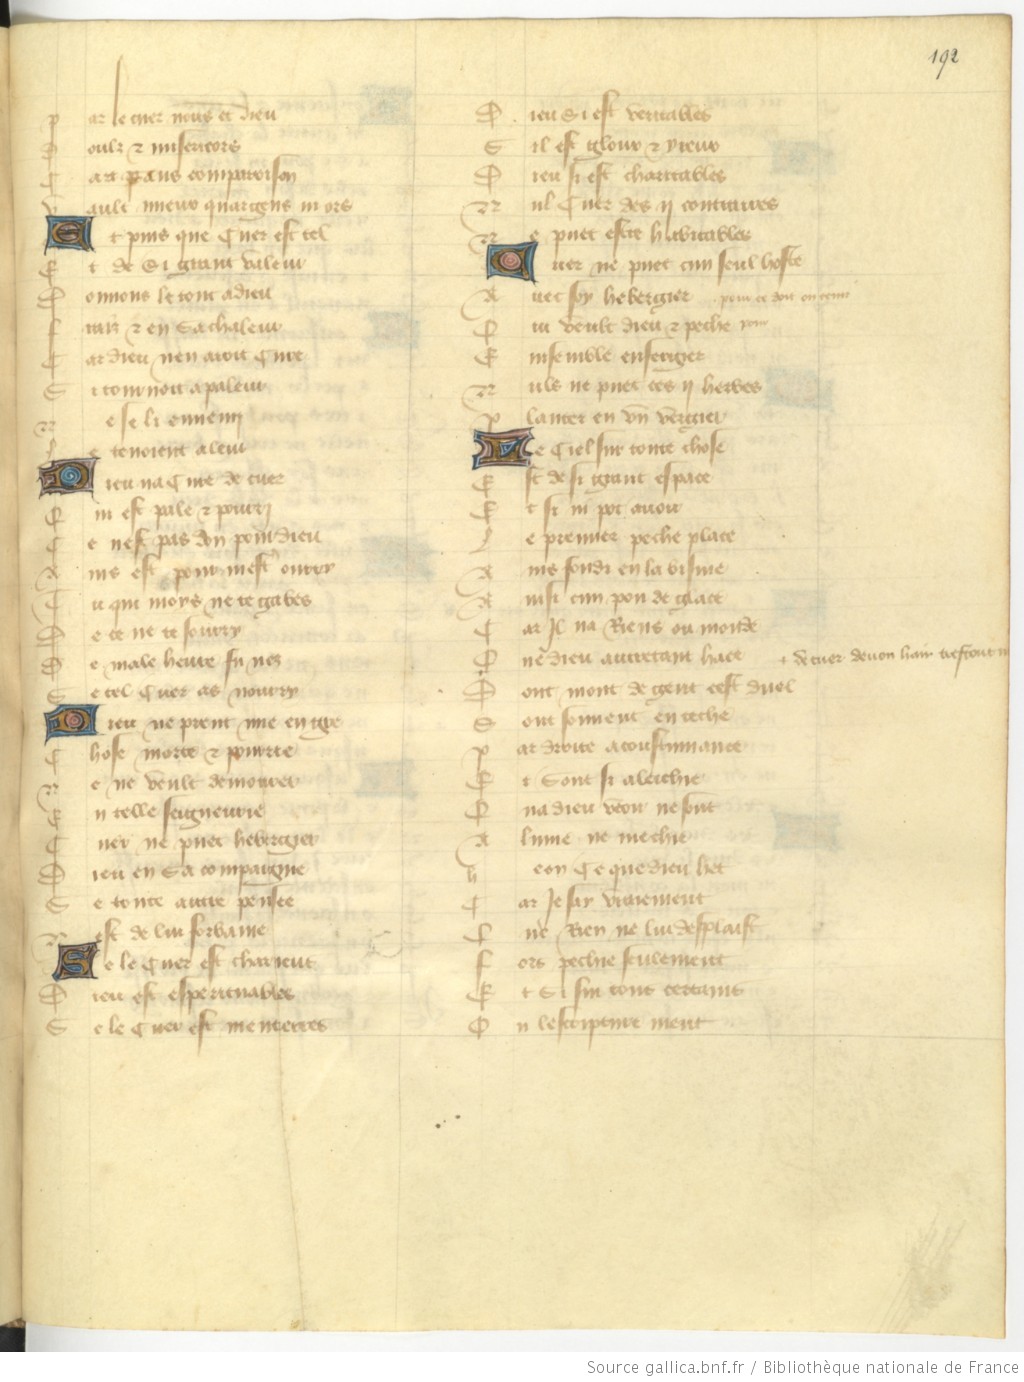 192
Par le cuer nous et dieu
Doulz & misericors
Car sans comparoison
Vault mieux quargens ni ors
Et puis que Cuer est tel
Et de Si grant valeur
Donnons le tout a dieu
et en Sa chaleur
Car dieu nen auoit Cure
Si tournoit a paleur
Ne se li ennemi
tenoient a leur
Dieu na Cure de cuer
Qui est pale & pourri
Ce nest pas don pour dieu
Ains est pour
Tu qui mors ne te gabes
De ce ne te sourry
De male heure fu nez
Se tel Cuer as nourry
Dieu ne prent mie en gre
Chose morte & pourrie
Ne ne veult demourer
En telle seigneurie
Cuer ne puet hebergier
Dieu en Sa compaignie
Se toute autre pensee
Nest de lui forbanie
Se le Cuer est charieux
Dieu est esperituables
Se le Cuer est menterres
Dieu Si est veritables
Sil est glouz & yreux
Dieu si est charitables
Nul Cuer des ij contraires
Ne puet estre habitables
Cuer ne puet cun seul hoste
Auec soy hebergier pour ce doit on
Qui veult dieu & peche
Ensemble
Nulz ne puet ces ij herbes
Planter en vn vergier
Le Ciel sur toute chose
Est de si grant espace
Et si ni pot auoir
Le premier peche place
Ains fondi en labisme
Ainsi cun pou de glace
Car Il na Riens ou monde
Que dieu autretant hace + de cuer deuon hair trestout
Dont mont de gent cest duel
Sont souuent en teche
Par droite acoustumance
Et Sont si aleichie
Qua dieu veoir ne sont
Alume ne mechie
heon Ce que dieu het
Car Je say vraiement
Que Rien ne lui desplaist
Fors pechie seulement
Et Si sui tous certains
On lescripture ment
Source gallica.bnf.fr / Bibliothèque nationale de France